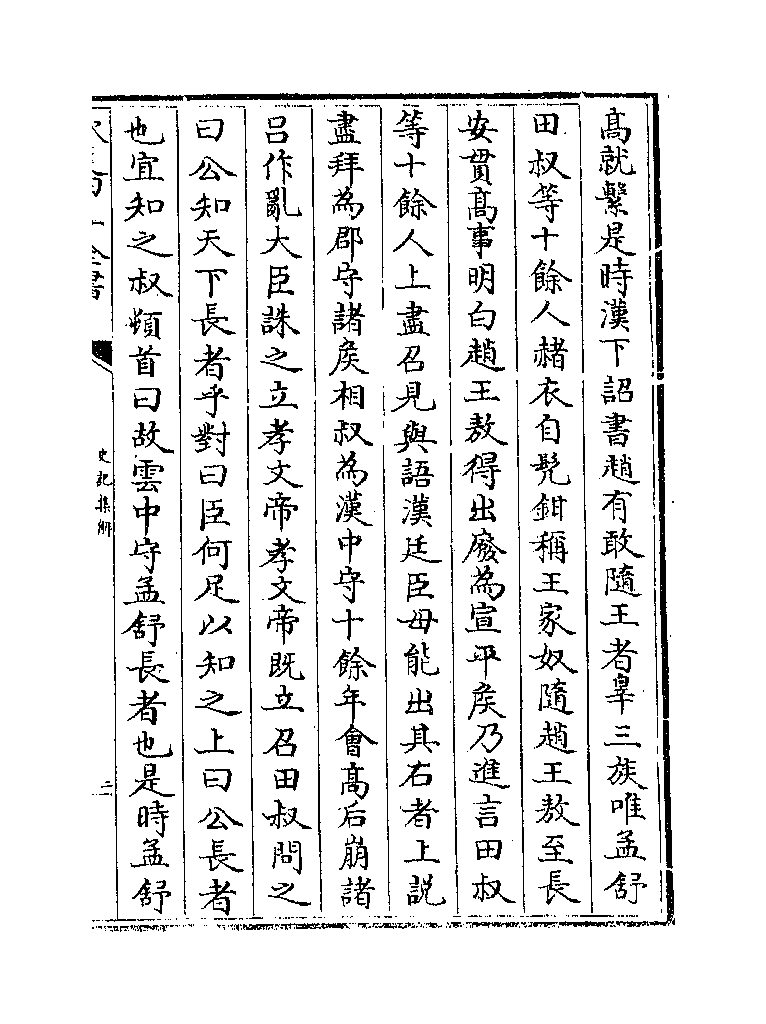 髙就繫是時漢下詔書趙有敢隨王者辠三族唯孟舒
田叔等十餘人赭衣自髠鉗稱王家奴隨趙王敖至長
安貫髙事明白趙王敖得出廢為宣平矦乃進言田叔
等十餘人上盡召見與語漢廷臣毋能出其右者上説
盡拜為郡守諸矦相叔為漢中守十餘年會髙后崩諸
吕作亂大臣誅之立孝文帝孝文帝既立召田叔問之
曰公知天下長者乎對曰臣何足以知之上曰公長者
也宜知之叔頓首曰故雲中守孟舒長者也是時孟舒
史記集解
二